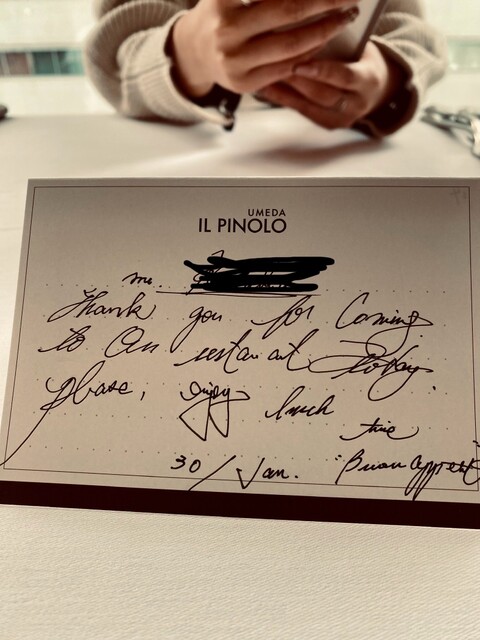 UMEDA
IL PINOLO
mr.
Thank you for Coming
to Our restaurant Today.
please, enjoy lunch
time
30/Jan. "Buon appetit